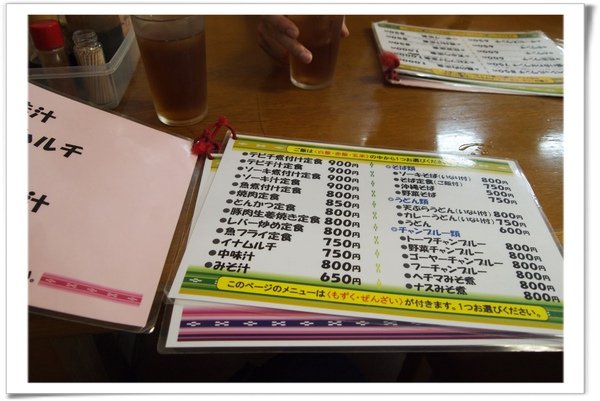 味汁
ナムルチ
汁
ご飯は〈白飯・赤飯・玄米〉の中から1つお選びください。
●テビチ煮付け定食 900円
●テビチ汁定食 900円
●ソーキ煮付け定食 900円
●ソーキ汁定食 900円
●魚煮付け定食 800円
●焼肉定食 850円
●とんかつ定食 850円
●豚肉生姜焼き定食 800円
●レバー炒め定食 800円
●魚フライ定食 750円
●イナムルチ 750円
●中味汁 800円
●みそ汁 650円
◎そば類
●ソーキそば(いなり付) 800円
●そば定食(ご飯付) 750円
●沖縄そば 500円
●野菜そば 750円
◎うどん類
●天ぷらうどん(いなり付) 800円
●カレーうどん(いなり付) 750円
●うどん 600円
◎チャンプルー類
●トーフチャンプルー 800円
●野菜チャンプルー 800円
●ゴーヤーチャンプルー 800円
●フーチャンプルー 800円
●ヘチマみそ煮 800円
●ナスみそ煮 800円
このページのメニューは〈もずく・ぜんざい〉が付きます。1つお選びください。